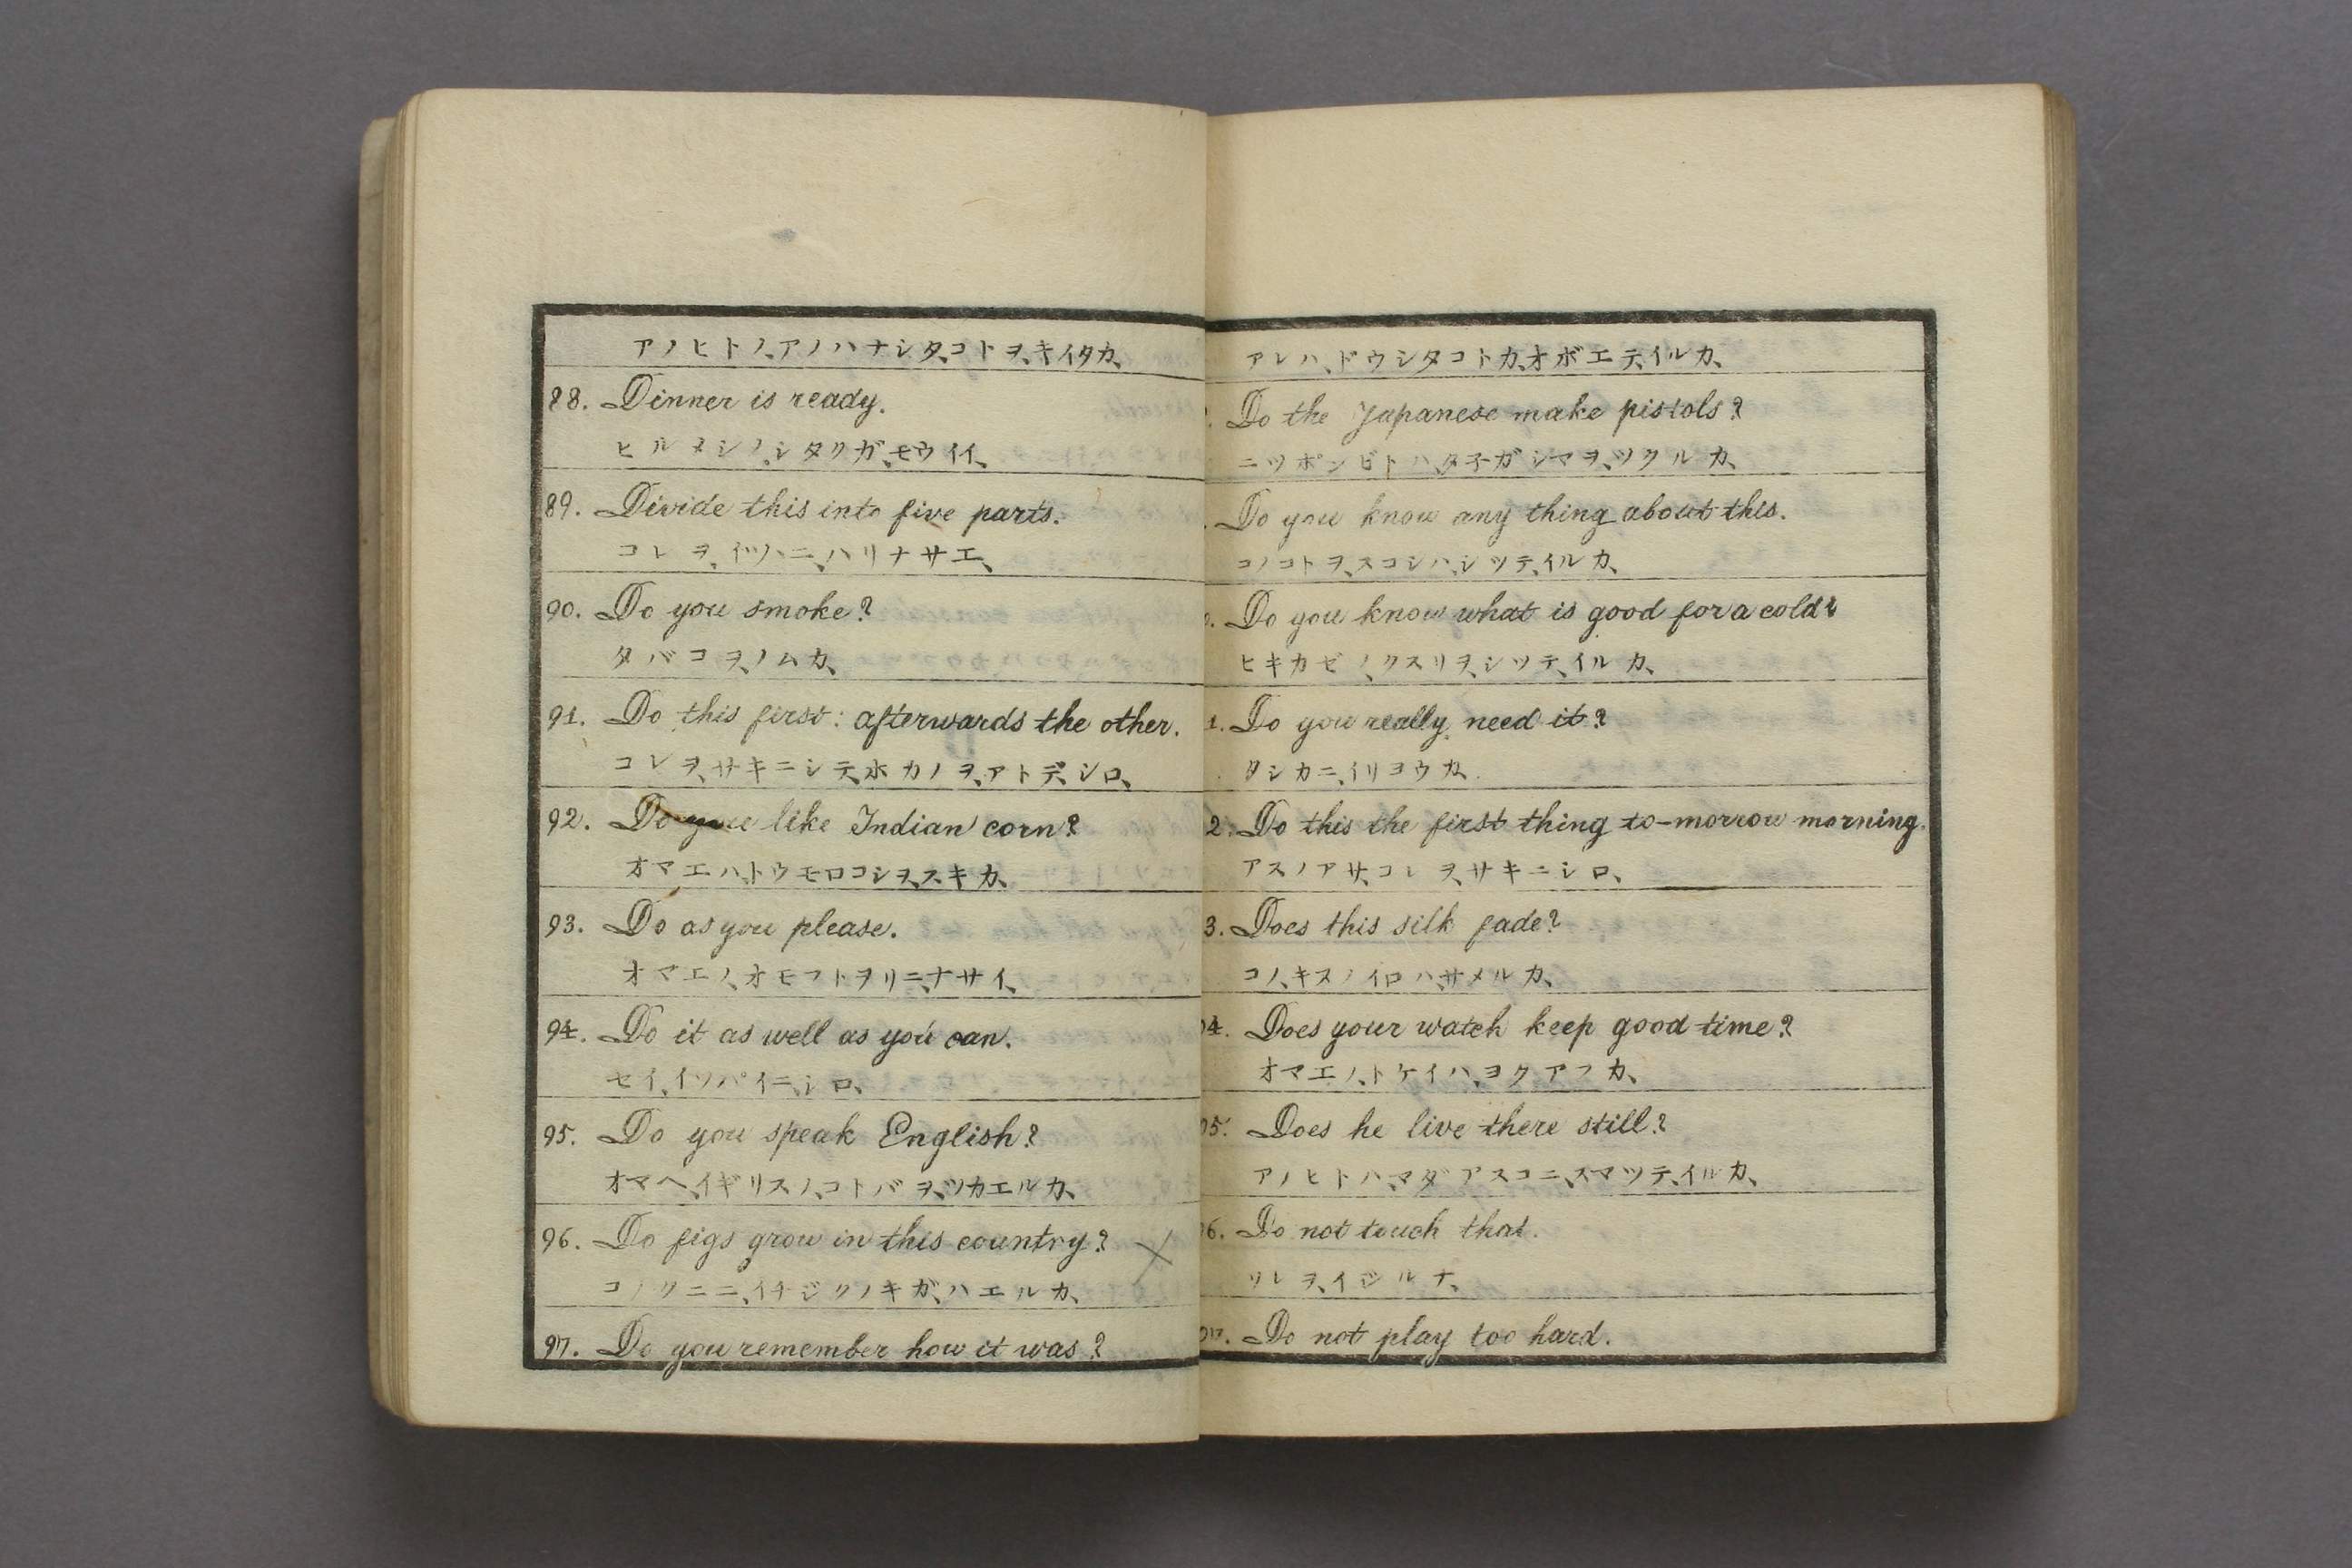 アノヒトノ、アノハナシタ、コトヲ、キイタカ、
88. Dinner is ready.
ヒルメシノ、シタクガ、モウイイ、
89. Divide this into five parts.
コレヲ、イツハニ、ハリナサエ、
90. Do you smoke?
タバコヲ、ノムカ、
91. Do this first: afterwards the other.
コレヲ、サキニシテ、ホカノヲ、アトデ、シロ、
92. Do you like Indian corn?
オマエハ、トウモロコシヲ、スキカ、
93. Do as you please.
オマエノ、オモフトヲリニ、ナサイ、
94. Do it as well as you can.
セイ、イツパイニ、シロ、
95. Do you speak English?
オマヘ、イギリスノ、コトバヲ、ツカエルカ、
96. Do figs grow in this country?
コノクニニ、イチジクノキガ、ハエルカ、
97. Do you remember how it was?
アレハ、ドウシタコトカ、オボエテ、イルカ、
Do the Japanese make pistols?
ニツポンビトハ、タ子ガシマヲ、ツクルカ、
Do you know any thing about this.
コノコトヲ、スコシハ、シツテ、イルカ、
Do you know what is good for a cold?
ヒキカゼノ、クスリヲ、シツテ、イルカ、
1. Do you really need it?
タシカニ、イリヨウカ、
2. Do this the first thing to-morrow morning.
アスノアサ、コレヲ、サキニシロ、
3. Does this silk fade?
コノ、キヌノイロハ、サメルカ、
4. Does your watch keep good time?
オマエノ、トケイハ、ヨクアフカ、
5. Does he live there still?
アノヒトハ、マダアスコニ、スマツテ、イルカ、
6. Do not touch that.
ソレヲ、イジルナ、
7. Do not play too hard.